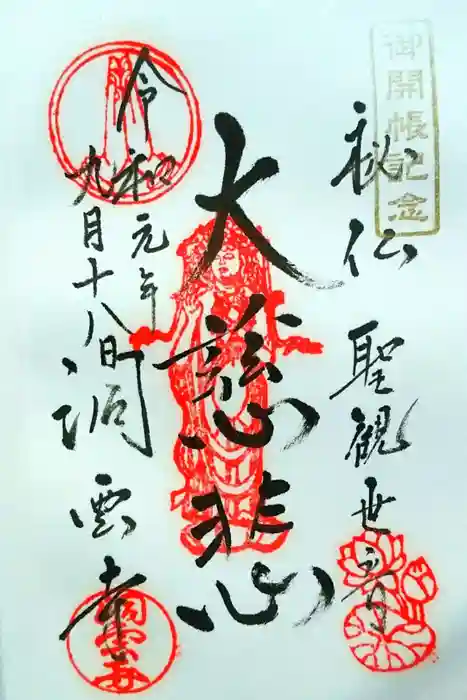 御開帳記念
秘仏 聖観世音
大慈悲
令和元年
九月十八日
洞雲寺
洞雲寺